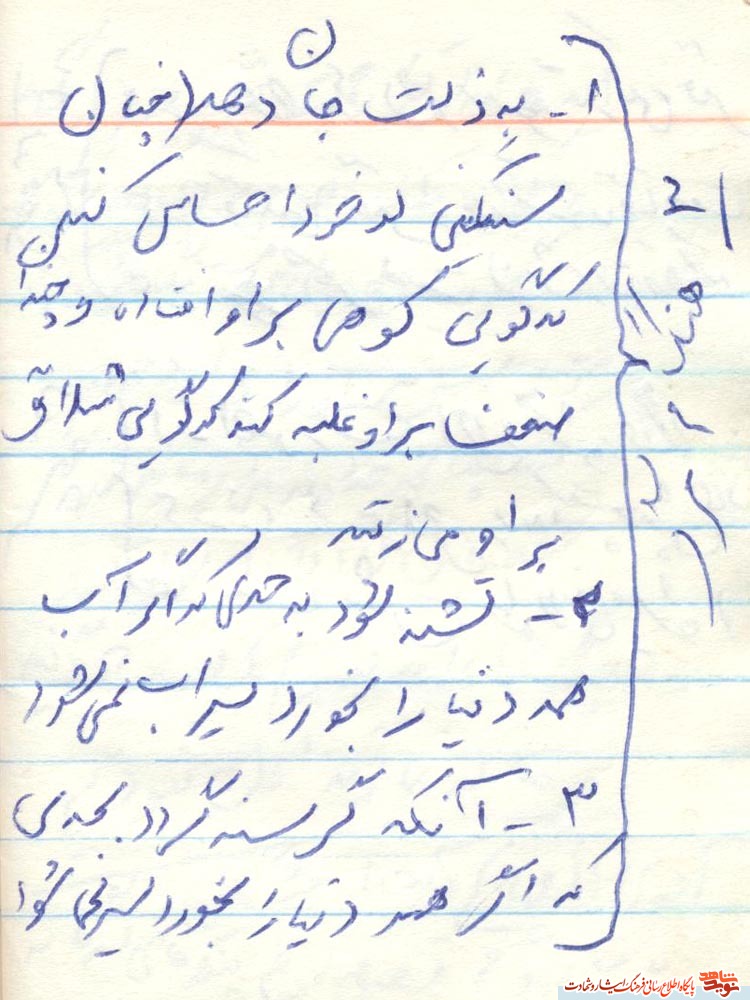 ۱- به ذلت جان دهد چنان
سنگینی در خود احساس کند
که گویی کوهی بر او افتاده و چندان
ضعف بر او غلبه کند که گویی شلاق
بر او می زنند
۲- تشنه شود به حدی که اگر آب
همه دنیا را بخورد سیراب نمی شود
۳- آنکه گرسنه گردد بحدی
که اگر همه دنیا را بخورد سیر نمی شود
هنگام
نوید شاهد
پایگاه اطلاع رسانی فرهنگ ایثار و شهادت